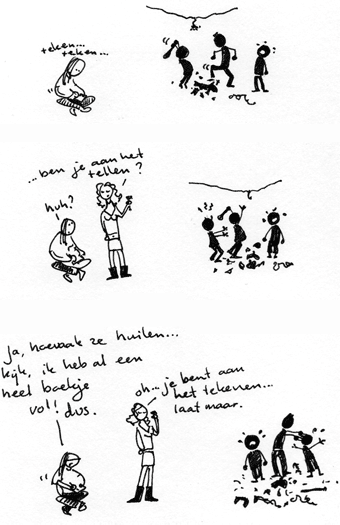 teken...
teken...
...ben je aan het
tellen?
huh?
Ja, hoevaak ze huilen...
kijk, ik heb al een
heel boekje
vol! dus.
oh... je bent aan
het tekenen...
laat maar.